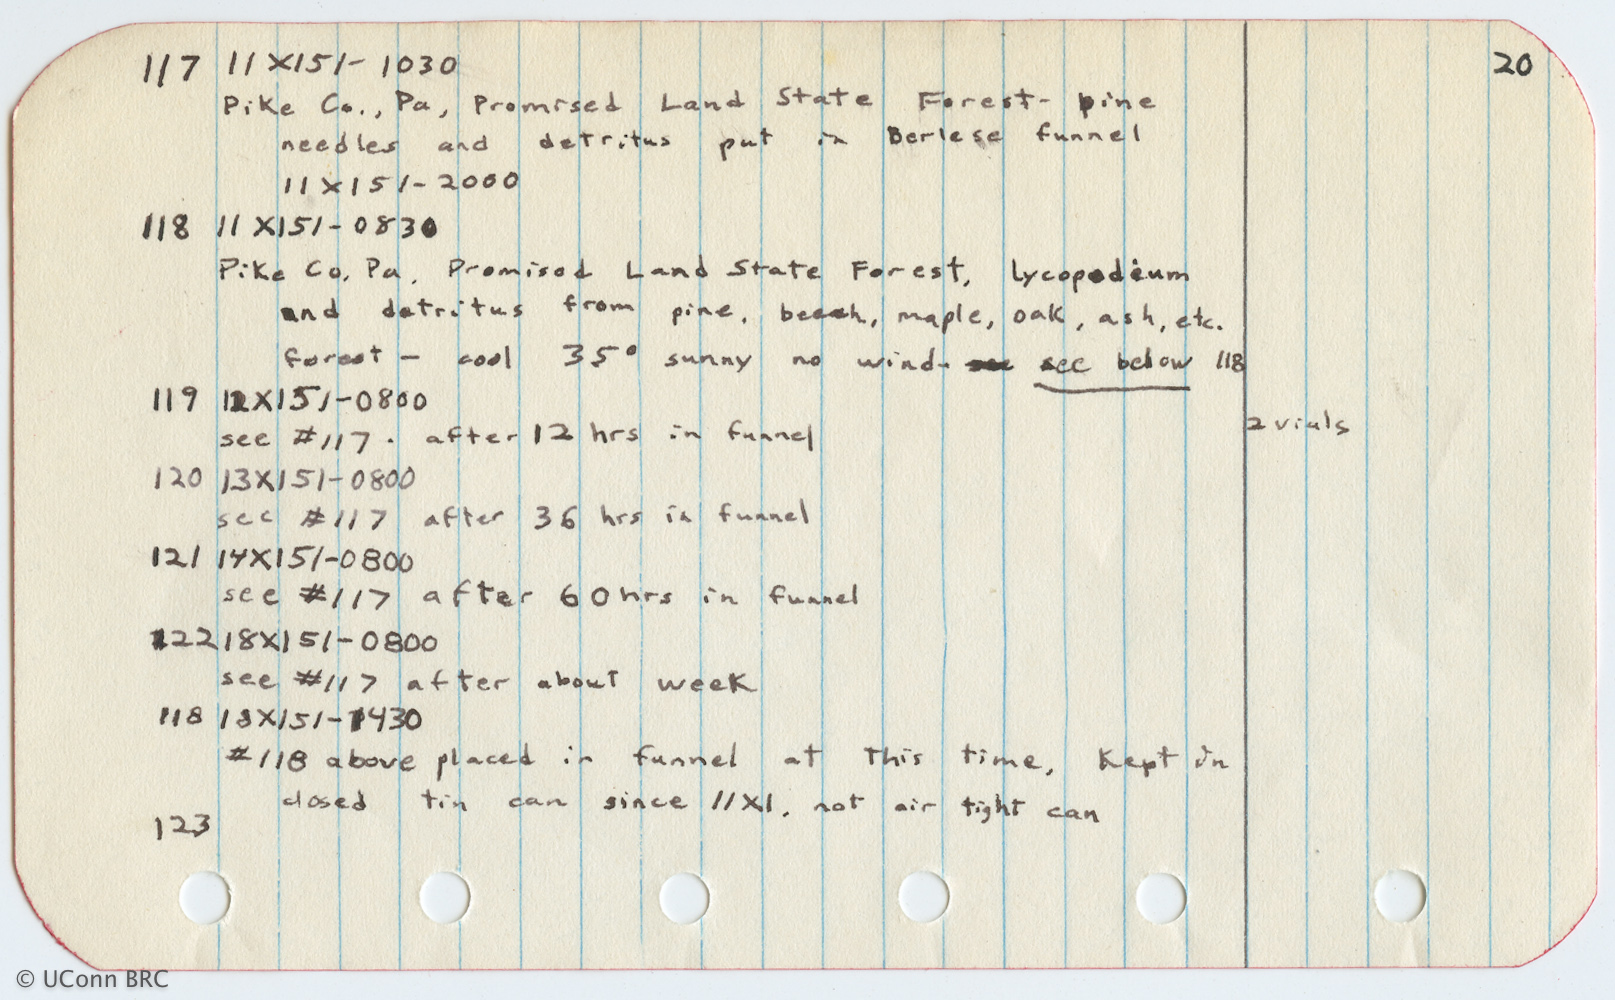 20
117 11X151-1030
Pike Co., Pa, Promised Land State Forest- pine
needles and detritus put in Berlese funnel
11X151-2000
118 11X151-0830
Pike Co, Pa, Promised Land State Forest, lycopodium
and detritus from pine, beech, maple, oak, ash, etc.
forest - cool 35° sunny no wind- see below 118
119 12X151-0800
see #117. after 12 hrs in funnel
2 vials
120 13X151-0800
see #117 after 36 hrs in funnel
121 14X151-0800
see #117 after 60 hrs in funnel
122 18X151-0800
see #117 after about week
118 18X151-1430
#118 above placed in funnel at this time, Kept in
closed tin can since 11X1, not air tight can
123
© UConn BRC